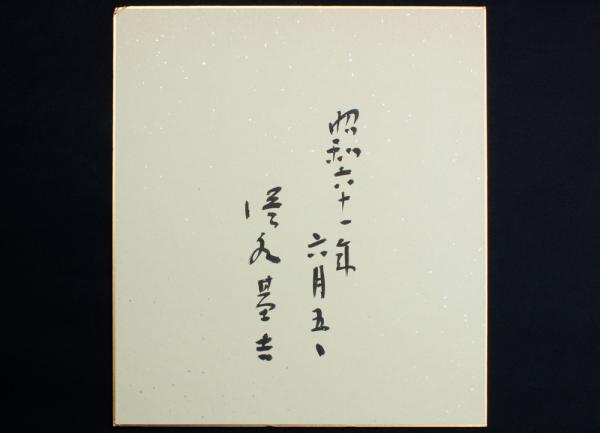 昭和六十一年
六月五日
清水基吉